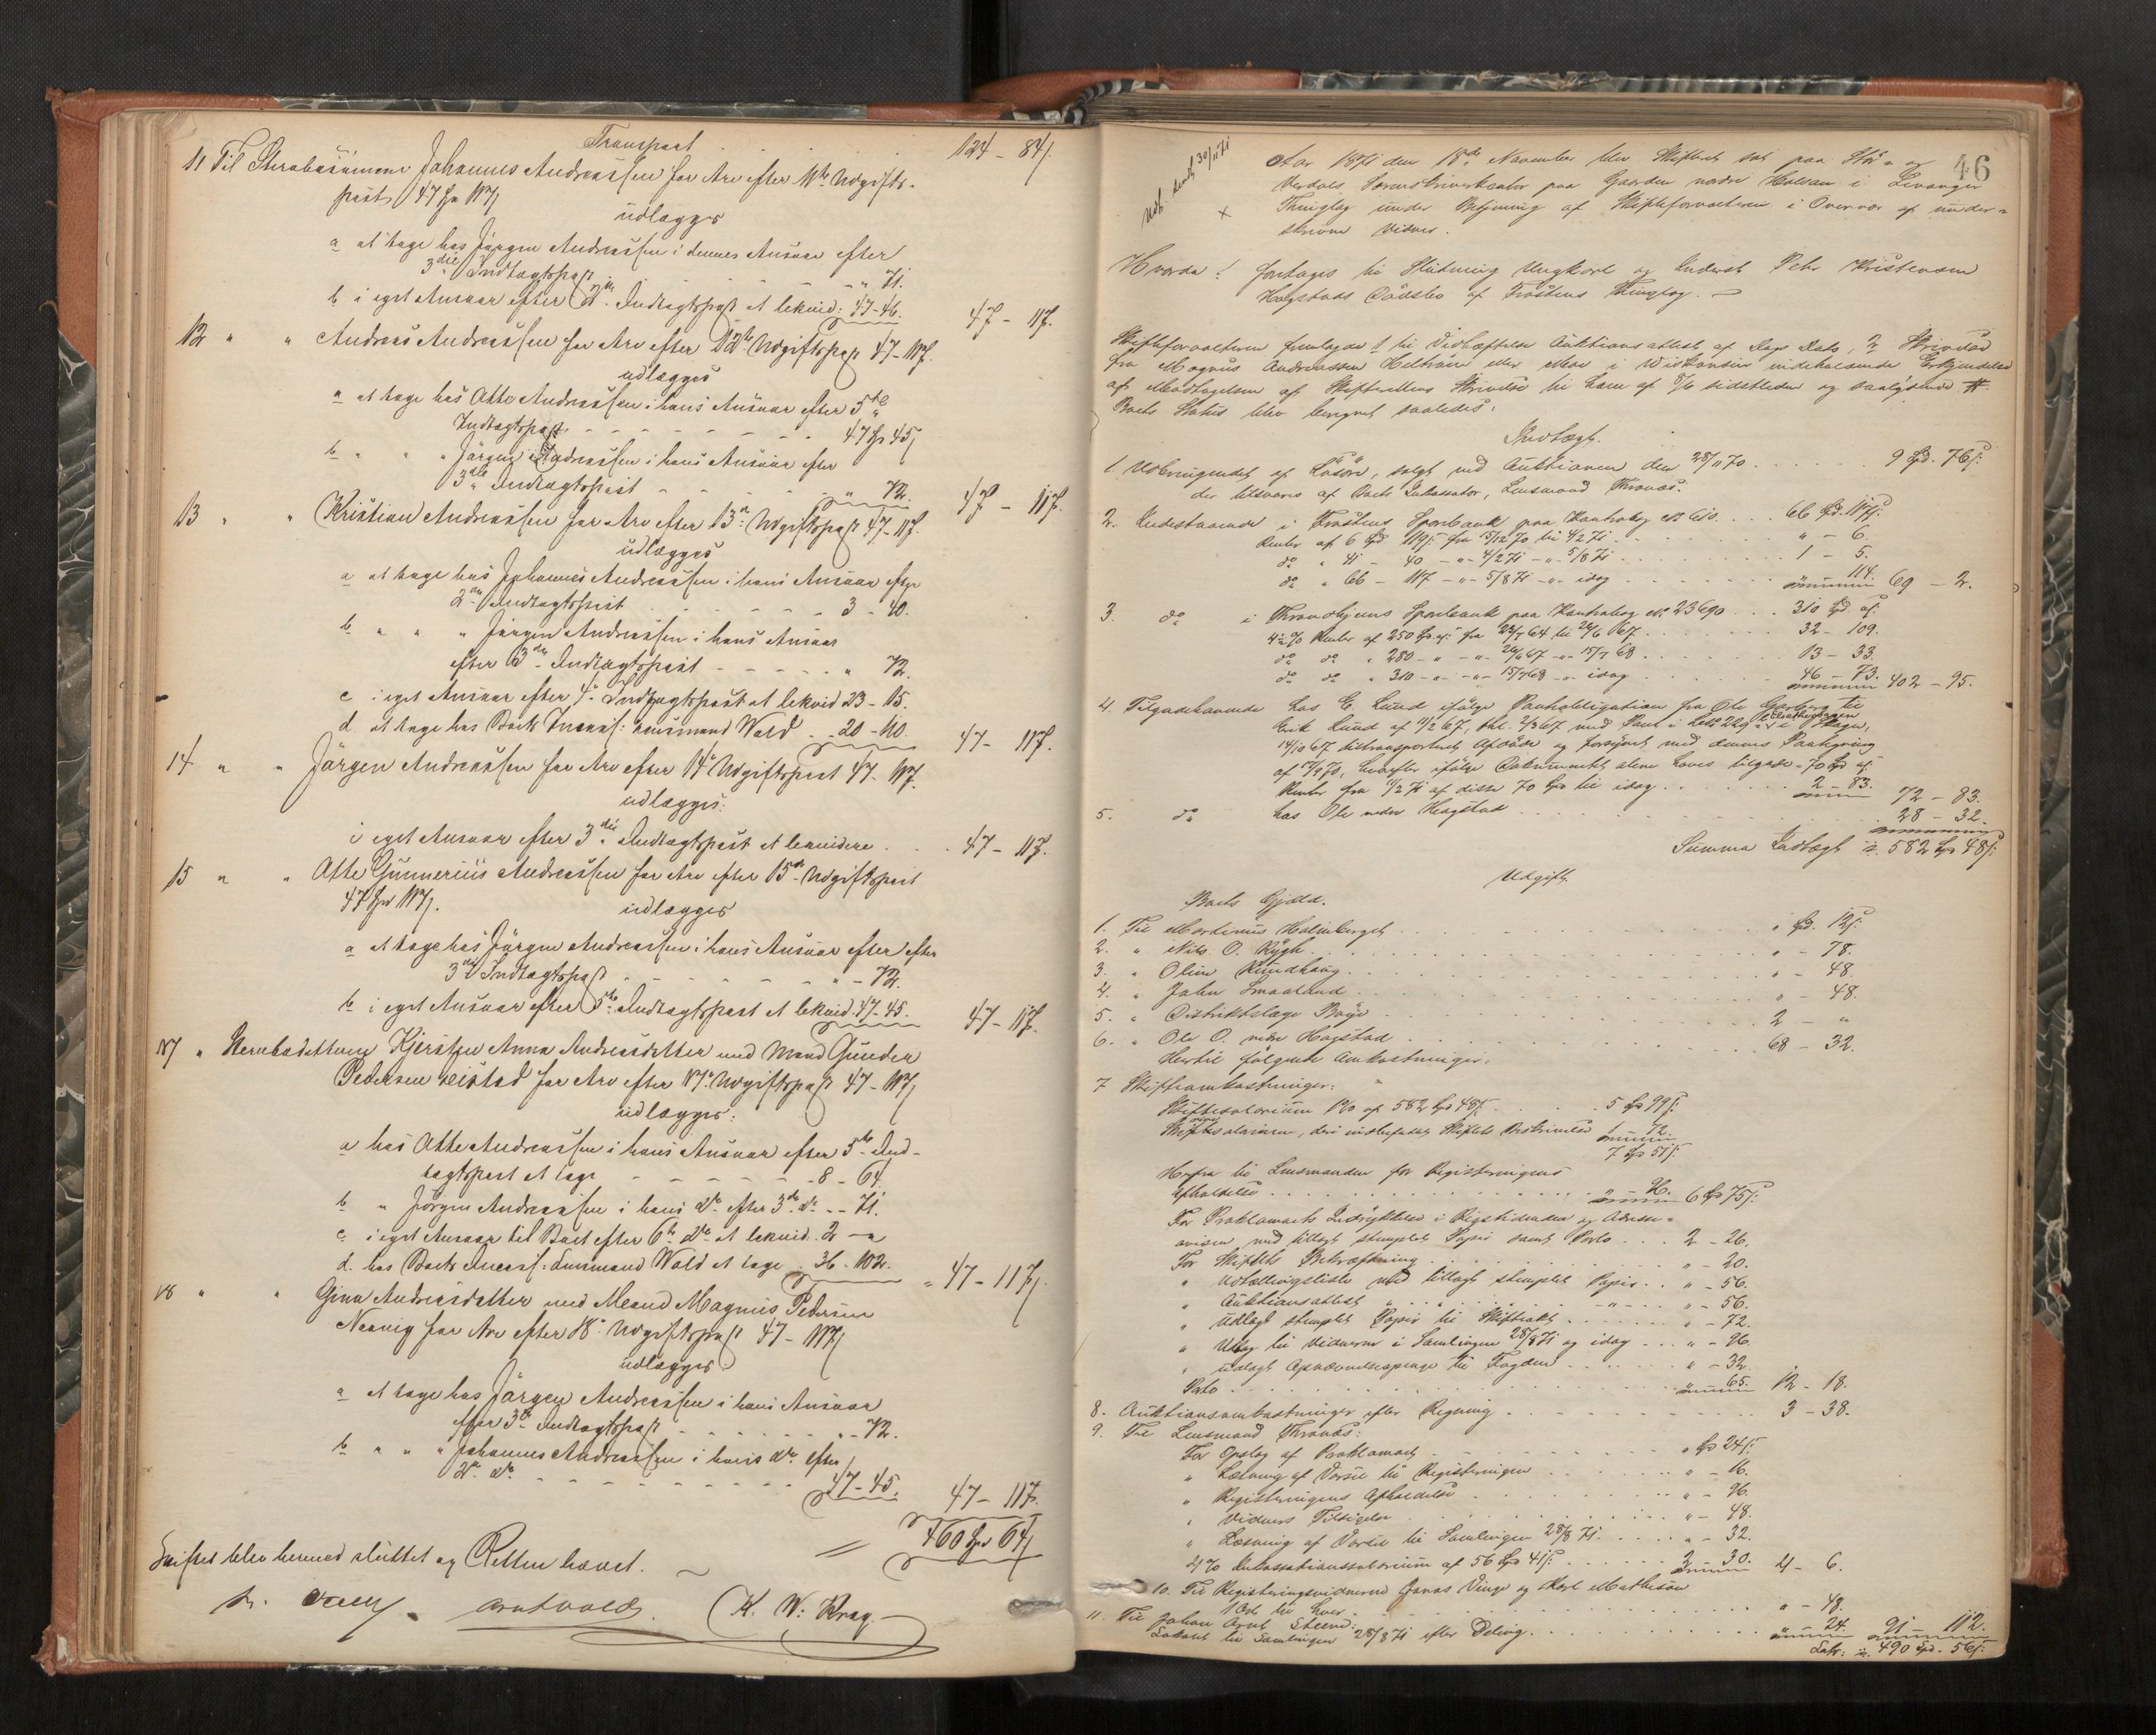 Transport . . . . 124 - 84ß.
11 Til Stervbosønnen Johannes Andreassen for Arv efter 11te Udgifts-
post 47 Spd 117ß
udlægges
a at tage hos Jørgen Andreassen i dennes Ansvar efter
3die Indtagtspost - - - - - " 71.
b i eget Ansvar efter 2den Indtagtspost at lekvid: 47-46. 47 - 117.
12 " " Andreas Andreassen for Arv efter 12te Udgiftspost 47-117.
udlægges
a at tage hos Otte Andreassen i hans Ansvar efter 5te
Indtagtspost - - - - - 47 Spd 45ß
b " " " Jørgen Andreassen i hans Ansvar efter
3die Indtagtspost - - - - - " 72. 47 - 117.
13 " " Kristian Andreassen for Arv efter 13de Udgiftspost 47-117.
udlægges
a at tage hos Johannes Andreassen i hans Ansvar efter
2den Indtagtspost . . . . . 3 - 40.
b " " " Jørgen Andreassen i hans Ansvar
efter 3die Indtagtspost - - - - - " 72.
c i eget Ansvar efter 4de Indtagtspost at lekvid 23 - 15.
d at tage hos Boets Incass: Lensmand Wold . . 20 - 110. 47 - 117.
14 " " Jørgen Andreassen for Arv efter 14de Udgiftspost 47 - 117.
udlægges:
i eget Ansvar efter 3die Indtagtspost at lekvidere . . . 47 - 117.
15 " " Otte Gunnerius Andreassen for Arv efter 15de Udgiftspost
47 Spd 117ß. udlægges
a at tage hos Jørgen Andreassen i hans Ansvar efter efter
3die Indtagtspost - - - - - " - 72.
b i eget Ansvar efter 5te Indtagtspost at lekvid. 47-45. 47 - 117.
17 " Stervbodatteren Kjerstine Anna Andreasdatter med Mand Gunder
Pedersen Leistad for Arv efter 17de Udgiftspost 47 - 117ß
udlægges:
a hos Otte Andreassen i hans Ansvar efter 5te Ind-
tagtspost at tage - - - - - 8 - 64.
b " Jørgen Andreassen i hans do efter 3die do - - 71.
c i eget Ansvar til Boet efter 6te do at lekvid. 2 - "
d. hos Boets Incass: Lensmand Wold at tage . 36 - 102. " 47 - 117ß.
18 " " Gina Andreasdatter med Mand Magnus Pedersen
for Arv efter 18de Udgiftspost 47 - 117ß
udlægges
a at tage hos Jørgen Andreassen i hans Ansvar
efter 3die Indtagtspost - - - - - " - 72.
b " " " Johannes Andreassen i hans do efter
2den do - - - - - 47-45. 47 - 117.
760 Spd 64ß
Skiftet blev hermed sluttet og Retten hævet.
K. W: Krag.
46
Aar 1871 den 18de November blev Skifteret sat paa Stør- og
Verdals Sorenskriverkontor paa Gaarden nedre Halsan i Levanger
Thinglag under Betjening af Skifteforvalteren i Overvær af under-
skrevne Vidner.
Hvorda: foretages til Slutning Ungkarl og Inderst Peter Kristensen
Hogstads Dødsbo af Frostens Thinglag.
Skifteforvalteren fremlagde 1 til Vedhæftelse Auktionsattest af Dags Dato, 2 Skrivelse
fra Magnus Andreassen i Wiskonsin indeholdende Erkjendelse
af Modtagelsen af Skifterettens Skrivelse til ham af 8/6 sidstleden og saalydende #
Boets Status blev beregnet saaledes:
Indtægt.
1. Udbringendet af Løsøre, solgt ved Auktionen den 28/11 70 . . . . . 9 Spd. 76ß.
der tilsvares af Boets Inkassator, Lensmand Thronæs.
2. Indestaaende i Frostens Sparebank paa Kontrabog No 610 . . . . 66 Spd. 117ß.
Renter af 6 Spd 119ß fra 15/12 70 til 4/2 71 . . . . " - 6.
do " 41 - 40 - " - 4/2 71 - " - 5/8 71 . . . . 1 - 5.
do " 66 - 117 - " - 5/8 71 - " - idag . . . . " 114. 69 - 2.
3. do i Throndhjems Sparebank paa Kontrabog No 23690 . . . 310 Spd. "ß.
4½% Renter af 250 Spd "ß fra 22/7 64 til 26/6 67 . . . . 32 - 109.
do do " 280 - " - " - 26/6 67 - " - 15/7 68 . . . . 13 - 33.
do do " 310 - " - " - 15/7 68 - " - idag . . . . 46 - 73. 402 - 95.
4. Tilgodehavende hos E. Lund ifølge Pantobligation fra Ole Garberg til
Erik Lund af 11/2 67, thl. 2/3 67 med Pant i
14/10 67 tiltransporteret Afdøde og forsynet med dennes Paategning
af 17/9 70, hvorefter ifølge Dokumentet alene haves tilgode - 70 Spd "ß.
Renter fra 11/2 71 af disse 70 Spd til idag . . . . 2 - 83. 72 - 83.
5. do hos Ole nedre Hogstad . . . . 28 - 32.
Summa Indtægt 582 Spd 48ß.
Udgift.
Boets Gjeld.
1. Til Mordinus Holmberget . . . . " Spd. 12ß.
2. " Nils O. Rygh . . . . " - 78.
3. " Oline Rundhaug . . . . " - 48.
4. " John Smaaland . . . . " - 48.
5. " Distriktslæge Bøye . . . . 2 - "
6. " Ole O. nedre Hogstad . . . . 68 - 32.
Hertil følgende Omkostninger:
7 Skifteomkostninger:
Skiftesalarium 1% af 582 Spd 48ß. . . . . 5 Spd 99ß.
Skriversalarium, deri indbefattet Skiftets Beskrivelse 1 - 72.
7 Spd 51ß.
Herfra til Lensmanden for Registreringens
Afholdelse . . . . " - 96. 6 Spd 75ß.
For Proklamaets Indrykkelse i Rigstidenden og Adresse-
avisen med tillagt stemplet Papir samt Porto . . . 2 - 26.
For Skiftets Bekræftning . . . . " - 20.
" Udlodningsliste med tillagt stemplet Papir . . " - 56.
" Auktionsattest " - " - 56.
" Udlagt stemplet Papir til Skifteakt . . . . " - 72.
" Udlæg til Vidnerne i Samlingen 28/8 71 og idag . . . " - 96.
" udlagt Opnævnelsespenge til Fogden . . . . " - 32.
Porto . . . . " 65. 12 - 18.
8. Auktionsomkostninger efter Regning . . . . 3 - 38.
9. Til Lensmand Thronæs:
For Opslag af Proklamaet . . . . " Spd 24ß.
" Læsning af Varsel til Registreringen . . . . " - 16.
" Registreringens Afholdelse . . . . " - 96.
" Vidners Tilsigelse . . . . " - 48.
" Læsning af Varsel til Samlingen 28/8 71. . . . . " - 32.
4% Inkassationssalarium af 56 Spd 41ß. . . . . 2 - 30. 4 - 6.
10. Til Registreringsvidnerne Jonas Vinge og Karl Mathison
1 Ort til hver . . . . " - 48.
11. Til Johan Arnt Steend:
Lokale til Samlingen 28/8 71 efter Deling . . . . " - 24. 91 - 112.
Lat: 490 Spd. 56ß.